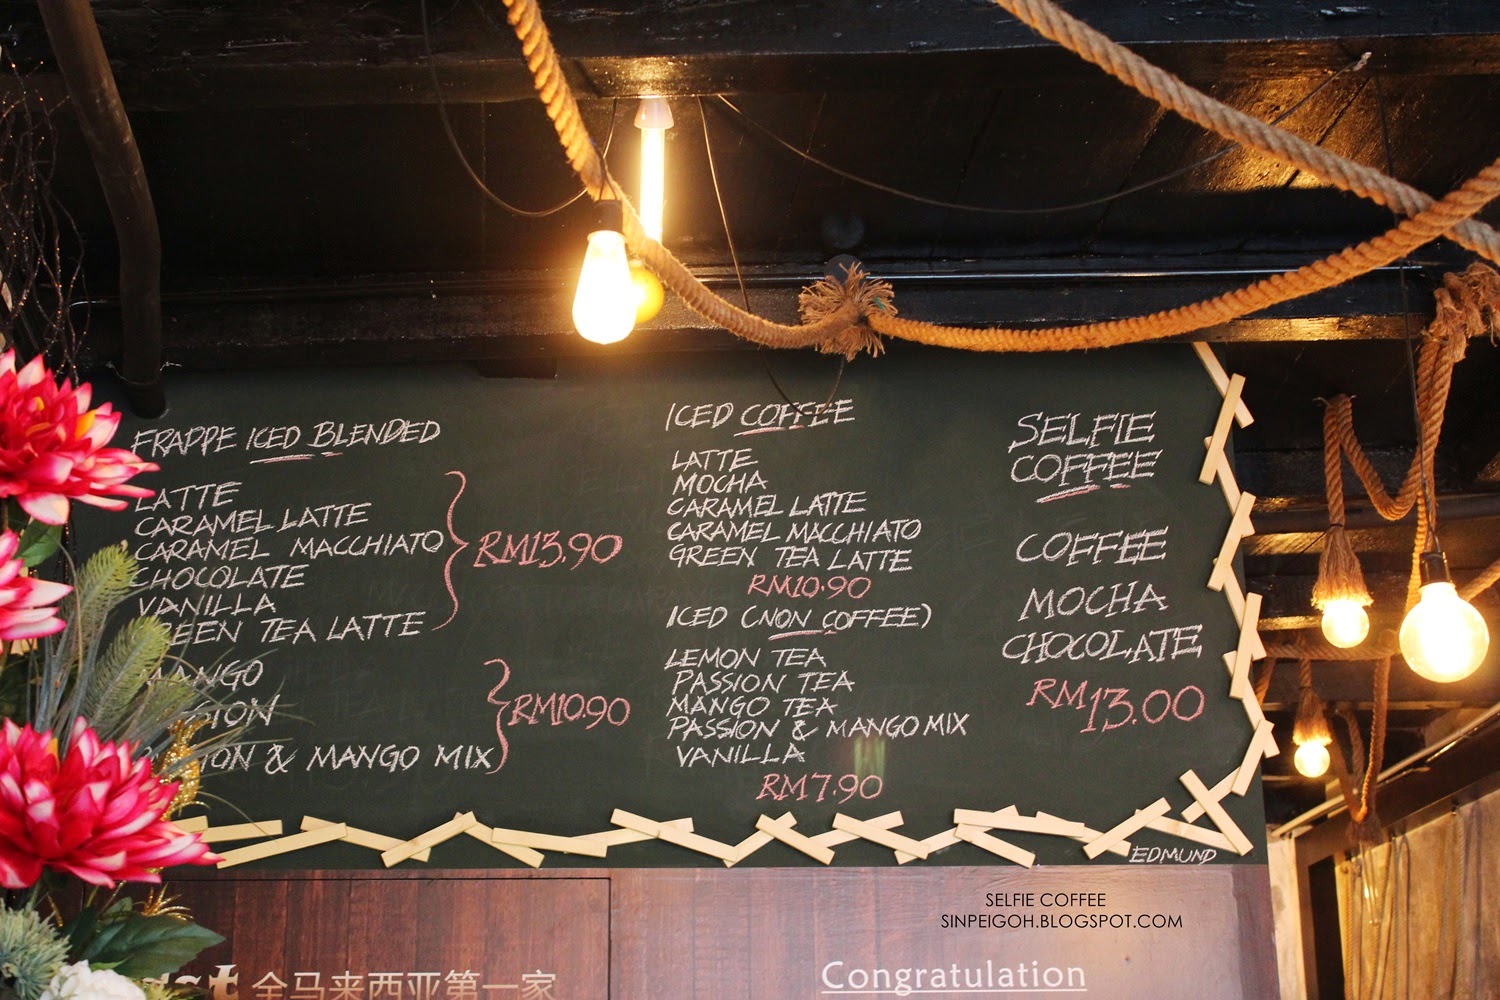 FRAPPE ICED BLENDED
LATTE
CARAMEL LATTE
CARAMEL MACCHIATO
CHOCOLATE
VANILLA
EEN TEA LATTE
RM13.90
MANGO
SION
ION & MANGO MIX
RM10.90
ICED COFFEE
LATTE
MOCHA
CARAMEL LATTE
CARAMEL MACCHIATO
GREEN TEA LATTE
RM10.90
ICED (NON COFFEE)
LEMON TEA
PASSION TEA
MANGO TEA
PASSION & MANGO MIX
VANILLA
RM7.90
SELFIE
COFFEE
COFFEE
MOCHA
CHOCOLATE
RM13.00
EDMUND
SELFIE COFFEE
SINPEIGOH.BLOGSPOT.COM
全马来西亚第一家
Congratulation